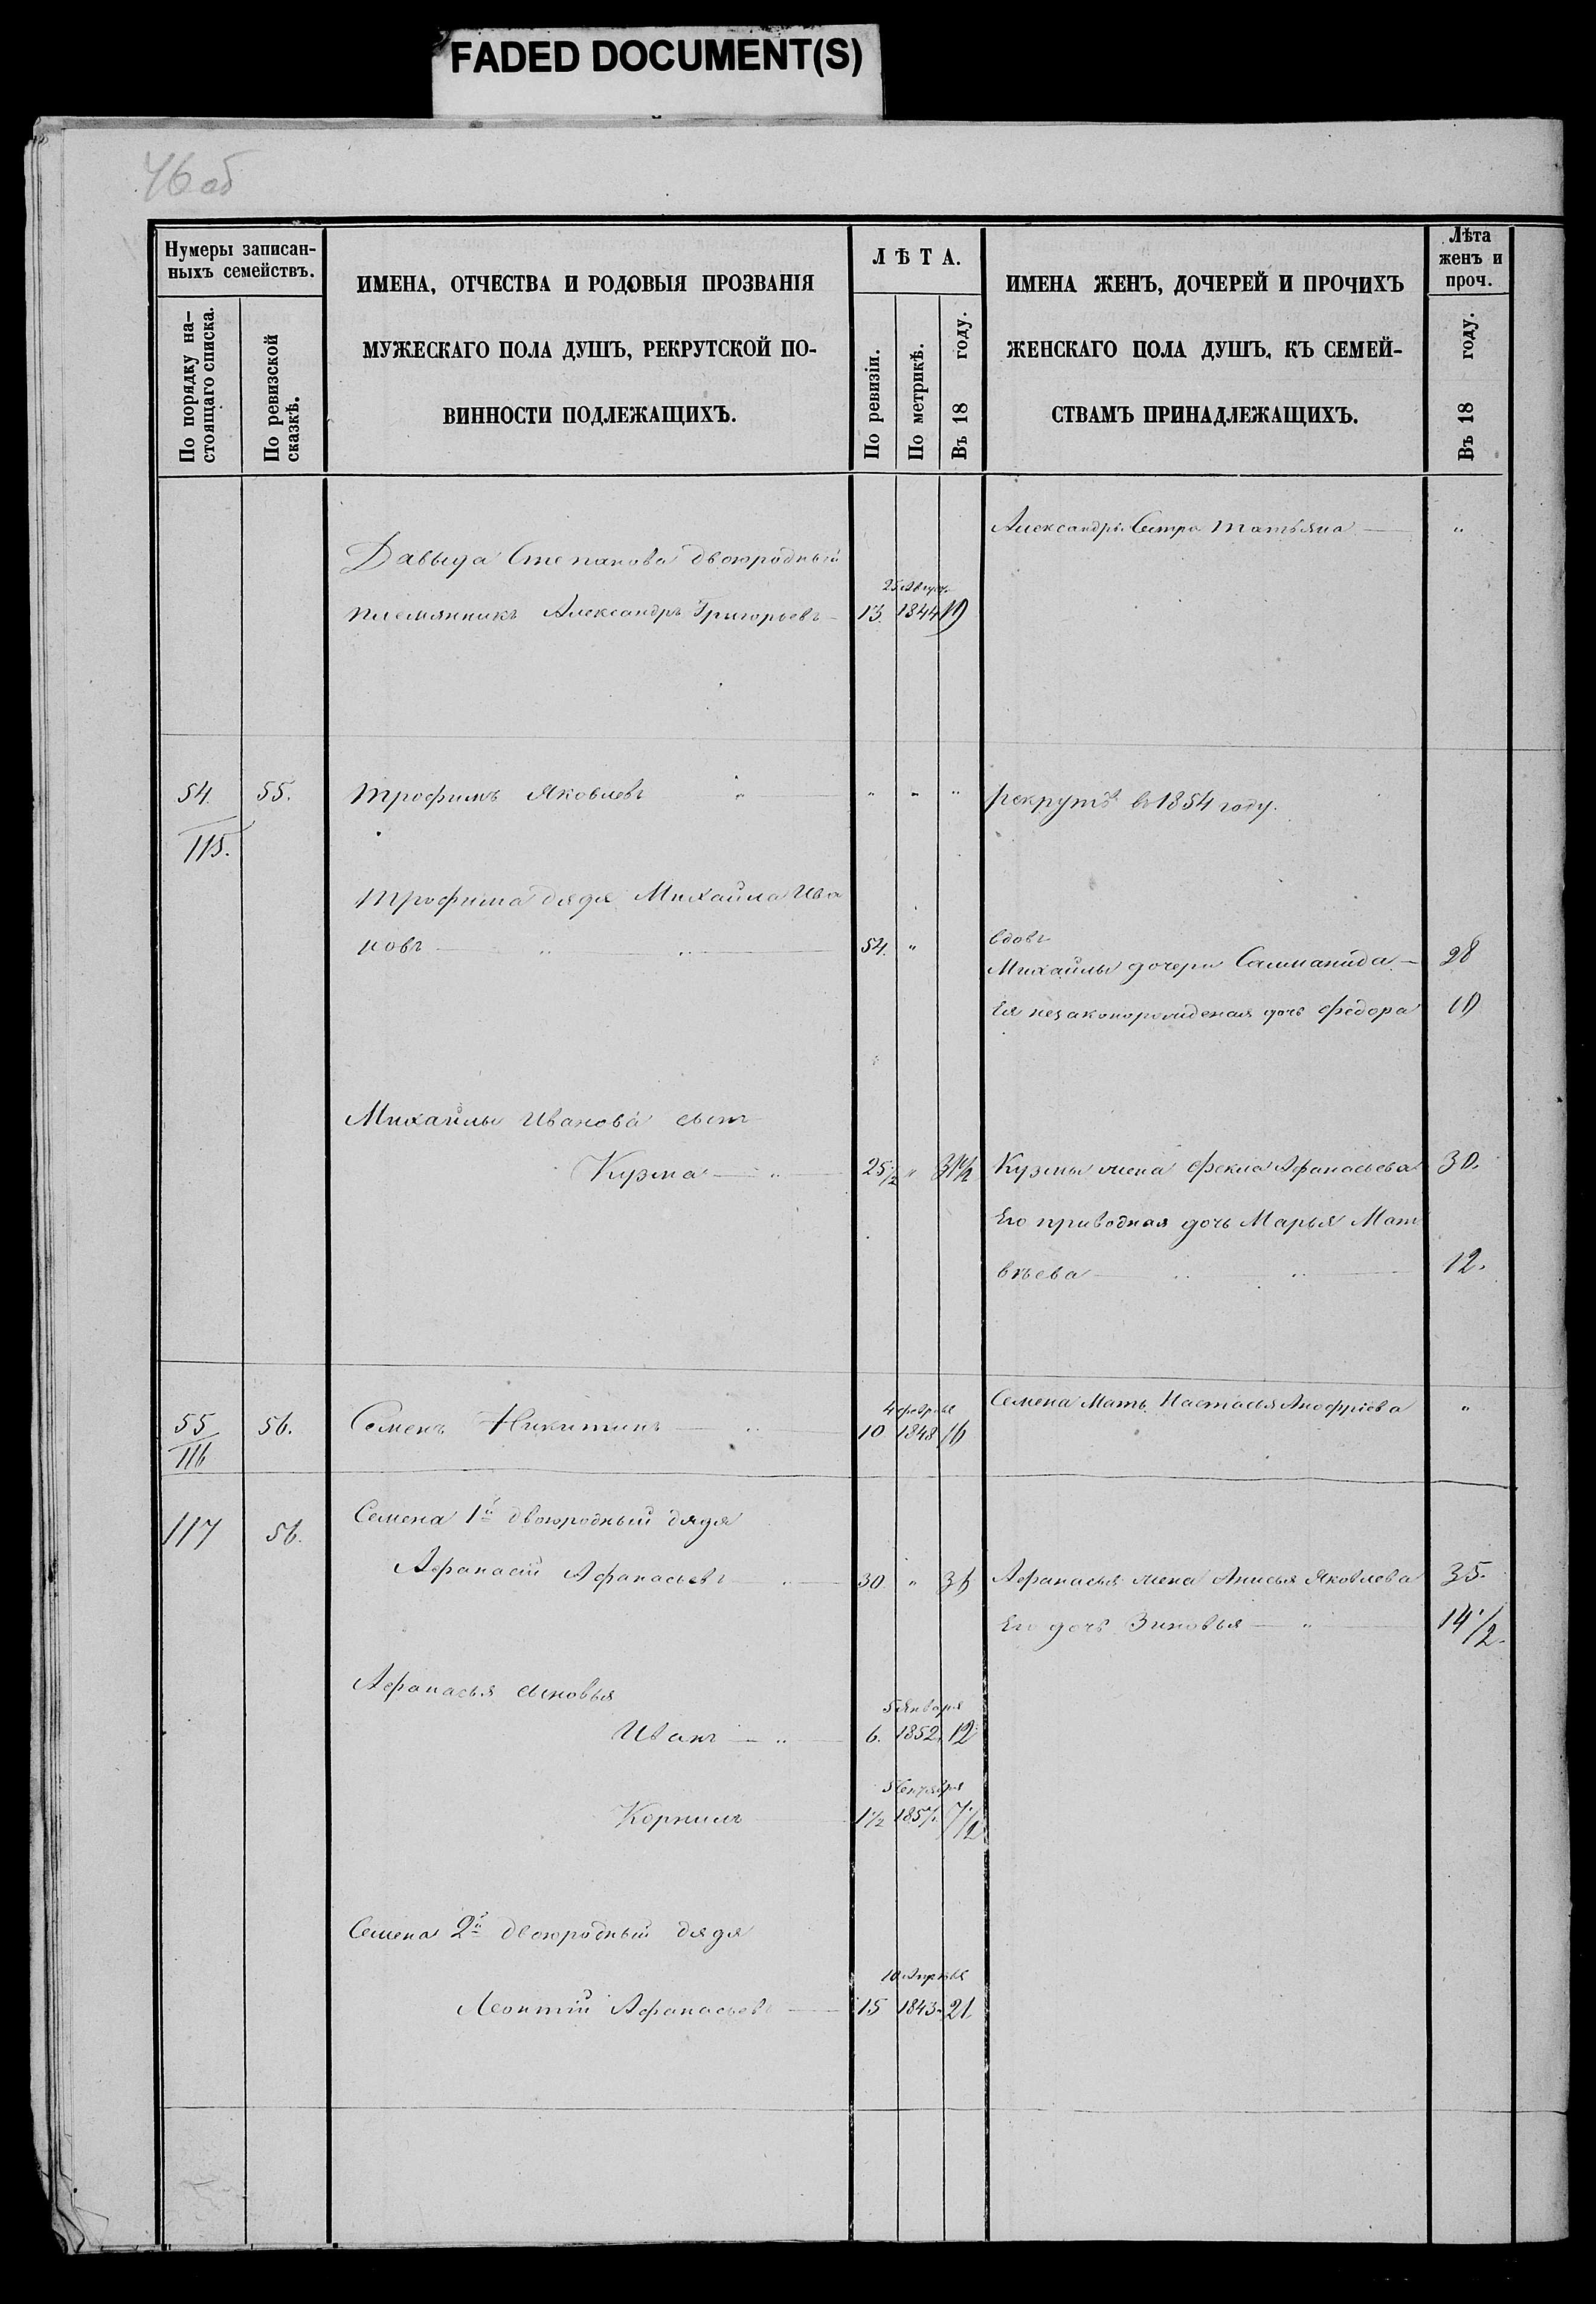 FADED DOCUMENT(S)
46 об
Нумеры записан-
ныхъ семействъ.
По порядку на-
стоящаго списка.
По ревизской
сказкѣ.
ИМЕНА, ОТЧЕСТВА И РОДОВЫЯ ПРОЗВАНІЯ
МУЖЕСКАГО ПОЛА ДУШЪ, РЕКРУТСКОЙ ПО-
ВИННОСТИ ПОДЛЕЖАЩИХЪ.
ЛѢТА.
По ревизіи.
По метрикѣ.
Въ 18 году.
ИМЕНА ЖЕНЪ, ДОЧЕРЕЙ И ПРОЧИХЪ
ЖЕНСКАГО ПОЛА ДУШЪ, КЪ СЕМЕЙ-
СТВАМЪ ПРИНАДЛЕЖАЩИХЪ.
Лѣта
женъ и
проч.
Въ 18 году.
Александры Сестра Татьяна — "
Давыда Степанова двоюродный
25 Август.
племянникъ Александръ Григорьевъ — 13. 1844 19
54. 55. Трофимъ Яковлевъ " — " " " рекрутъ в 1854 году.
115.
Трофима дядя Михаила Ива
новъ — " " — 54. "
вдовъ
Михайлы дочери Саламанида — 28
Ея незаконорожденая дочь Федора 10
Михайлы Иванова сынъ
Кузма — " — 25 1/2 " 31 1/2 Кузмы жена Фекла Афанасьева 30.
Его приводная дочь Марья Мат
вѣева — " " — 12.
Семена Мать Настасья Анофріева "
4 февраля
55 56. Семенъ Никитинъ — " — 10 1848 16
116
117 56. Семена 1й двоюродный дядя
Афанасій Афанасьевъ " — 30 " 36 Афанасья жена Анисья Яковлева 35.
Его дочь Зиновья — " — 14 1/2.
Афанасья сыновья
5 Января
Иванъ — " — 6. 1852. 12
5 Сентября
Корнилъ 1 1/2 1857. 7 1/2
Семена 2й двоюродный дядя
10 Апрѣля
Леонтій Афанасьевъ — 15 1843. 21.